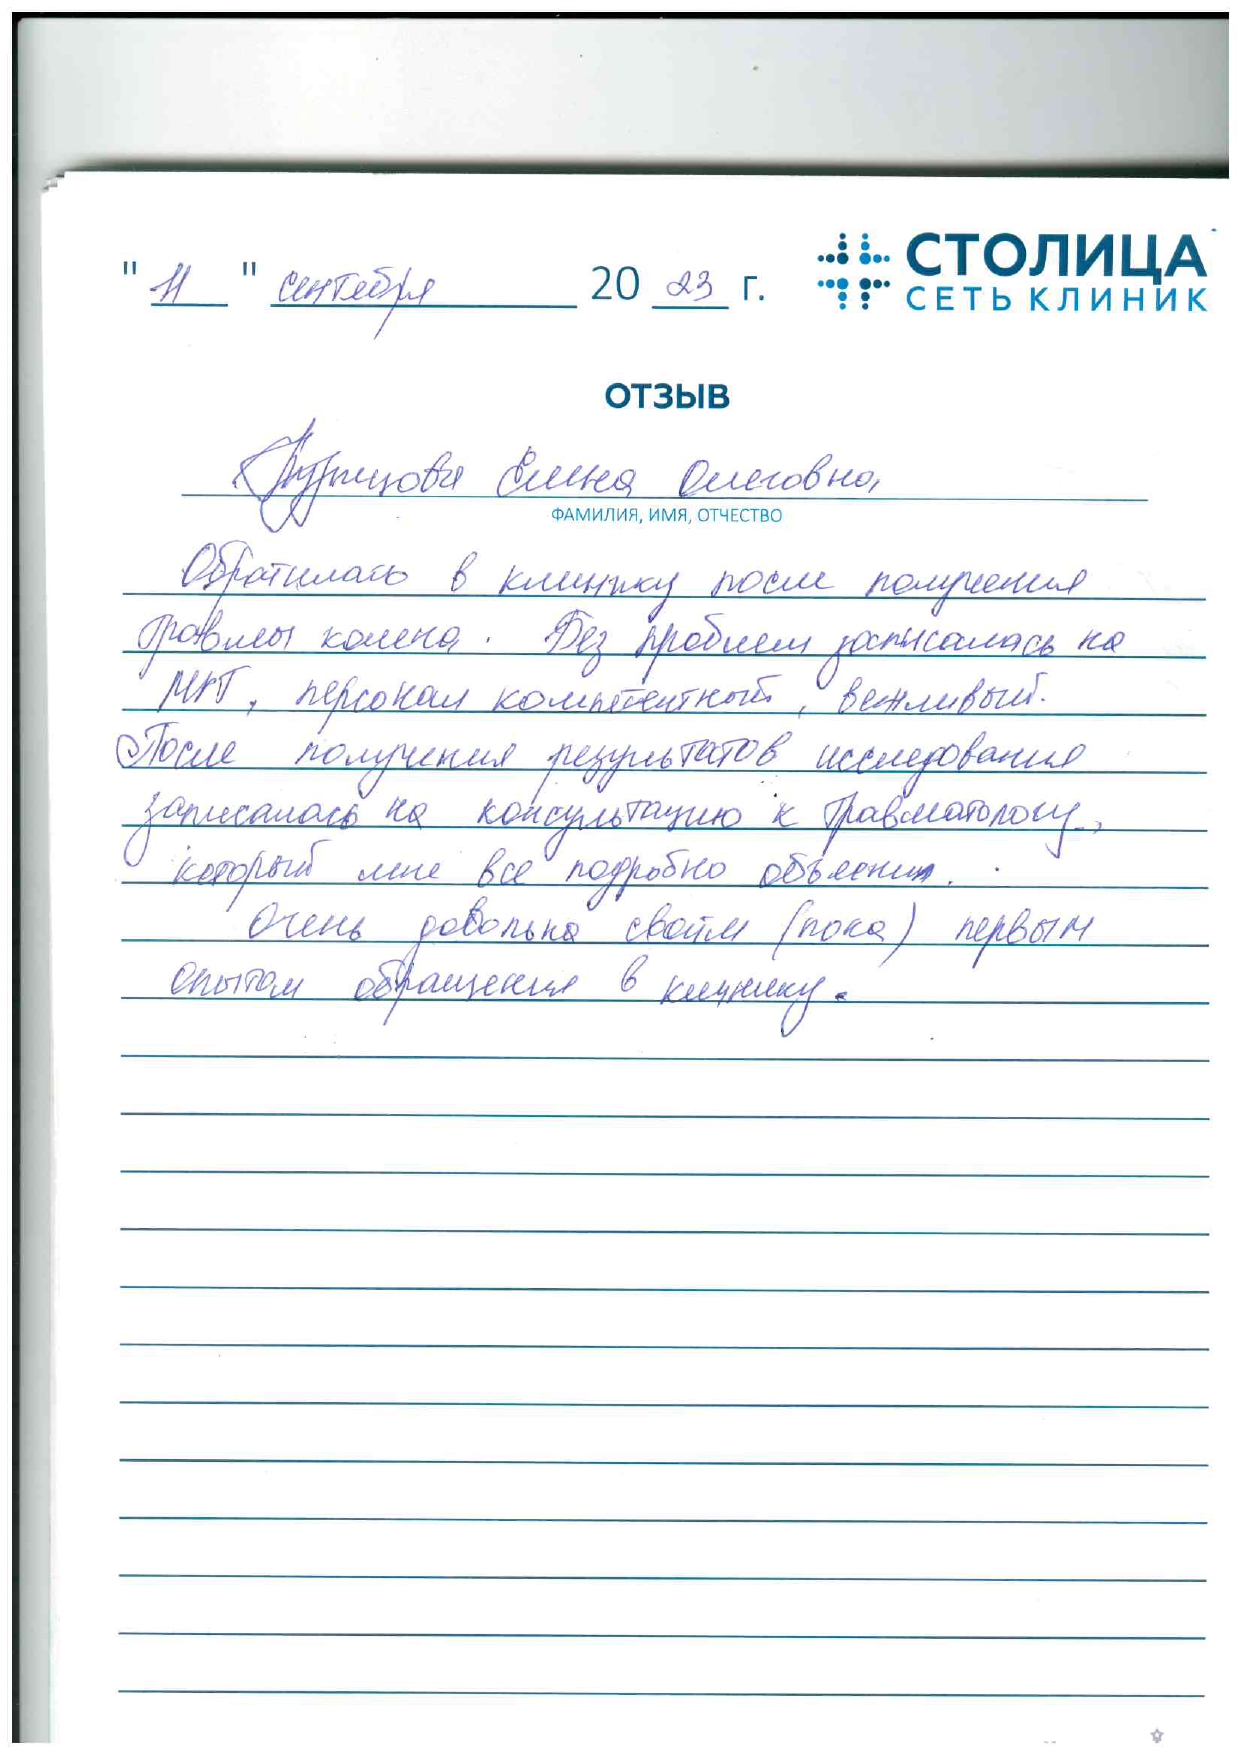 "11" сентября 2023 г.
СТОЛИЦА
СЕТЬ КЛИНИК
ОТЗЫВ
Елена Олеговна
ФАМИЛИЯ, ИМЯ, ОТЧЕСТВО
Обратилась в клинику после получения
травмы колена. Без проблем записалась на
МРТ, персонал компетентный, вежливый.
После получения результатов исследования
записалась на консультацию к травматологу,
который мне все подробно объяснил.
Очень довольна своим (пока) первым
опытом обращения в клинику.